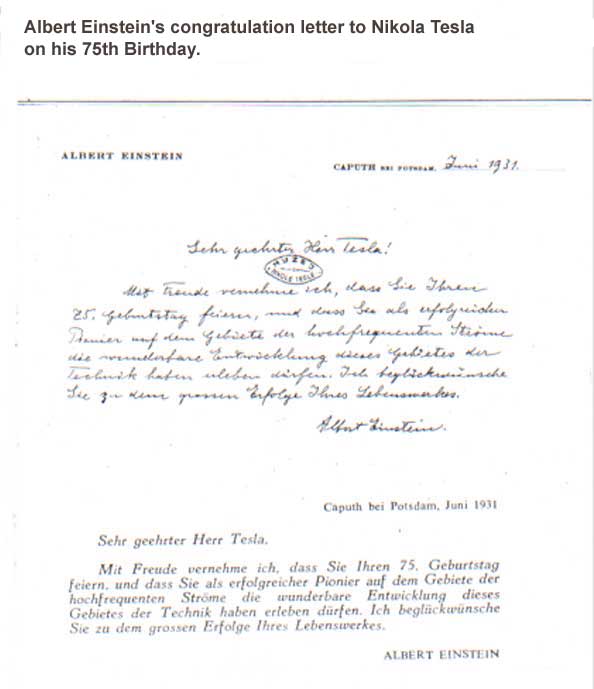 Albert Einstein's congratulation letter to Nikola Tesla
on his 75th Birthday.
ALBERT EINSTEIN
CAPUTH BEI POTSDAM, Juni 1931.
Sehr geehrter Herr Tesla!
MUZEJ
NIKOLE TESLE
Mit Freude vernehme ich, dass Sie Ihren
75. Geburtstag feiern, und dass Sie als erfolgreicher
Pionier auf dem Gebiete der hochfrequenten Ströme
die wunderbare Entwicklung dieses Gebietes der
Technik haben erleben dürfen. Ich beglückwünsche
Sie zu dem grossen Erfolge Ihres Lebenswerkes.
Albert Einstein.
Caputh bei Potsdam, Juni 1931
Sehr geehrter Herr Tesla.
Mit Freude vernehme ich, dass Sie Ihren 75. Geburtstag
feiern, und dass Sie als erfolgreicher Pionier auf dem Gebiete der
hochfrequenten Ströme die wunderbare Entwicklung dieses
Gebietes der Technik haben erleben dürfen. Ich beglückwünsche
Sie zu dem grossen Erfolge Ihres Lebenswerkes.
ALBERT EINSTEIN